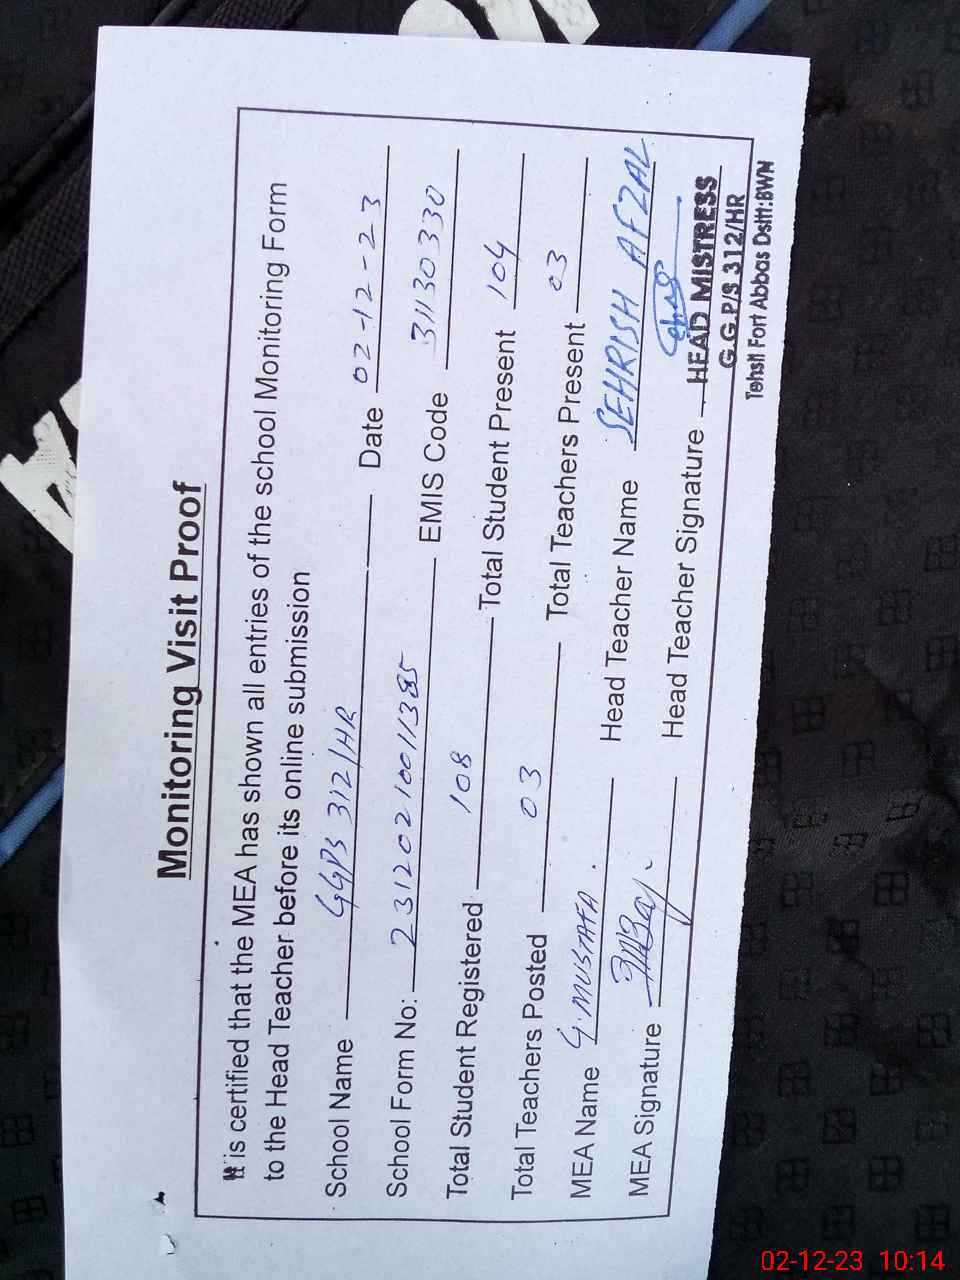 Monitoring Visit Proof
It is certified that the MEA has shown all entries of the school Monitoring Form
to the Head Teacher before its online submission
School Name GGPS 312/HR Date 02-12-23
School Form No: 23120210011385 EMIS Code 31130330
Total Student Registered 108 Total Student Present 104
Total Teachers Posted 03 Total Teachers Present 03
MEA Name G.MUSTAFA. Head Teacher Name SEHRISH AFZAL
MEA Signature Head Teacher Signature
HEAD MISTRESS
G.G.P/S 312/HR
Tehsil Fort Abbas Dstt:BWN
02-12-23 10:14